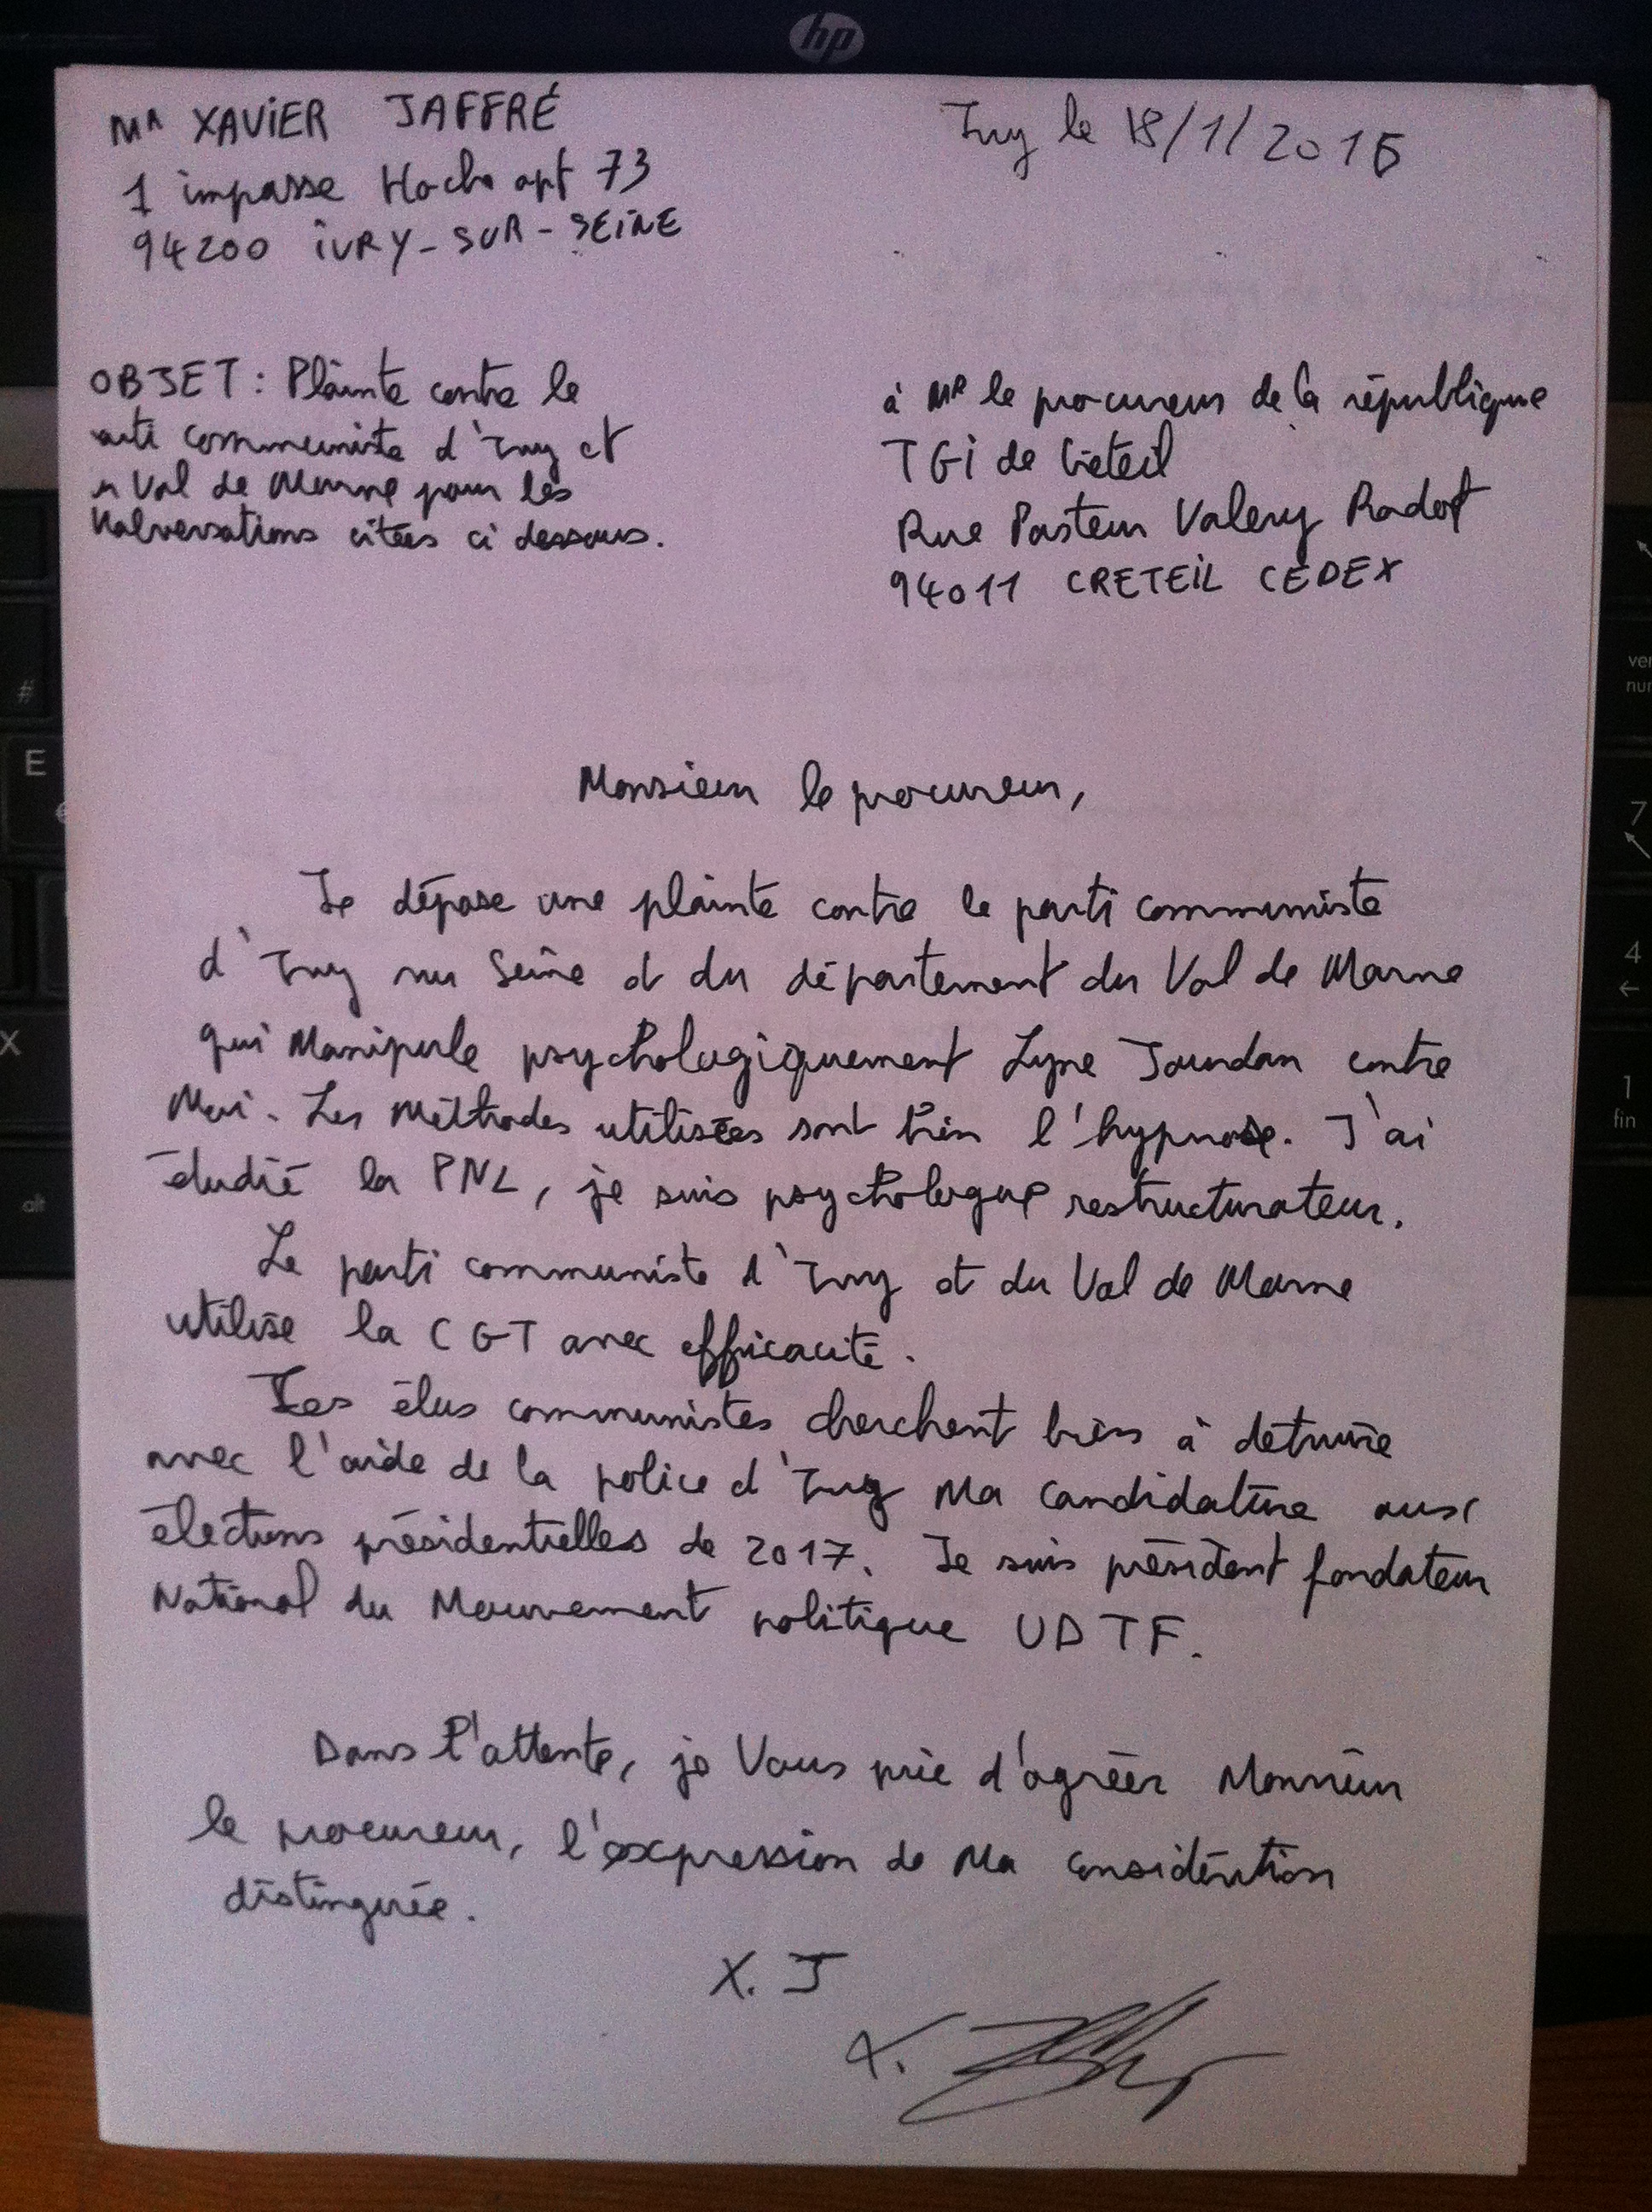 hp
MR XAVIER JAFFRÉ
1 impasse Hoche apt 73
94200 IVRY-SUR-SEINE
Ivry le 18/1/2016
OBJET : Plainte contre le
arti communiste d'Ivry et
u Val de Marne pour les
Malversations citées ci dessous.
à MR le procureur de la république
TGI de Créteil
Rue Pasteur Valery Radot
94011 CRETEIL CEDEX
Monsieur le procureur,
Je dépose une plainte contre le parti communiste
d'Ivry sur Seine et du département du Val de Marne
qui Manipule psychologiquement Lyne Jourdan contre
Moi. Les Méthodes utilisées sont bien l'hypnose. J'ai
étudié la PNL, je suis psychologue restructurateur.
Le parti communiste d'Ivry et du Val de Marne
utilise la CGT avec efficacité.
Les élus communistes cherchent bien à detruire
avec l'aide de la police d'Ivry Ma candidature aux
élections présidentielles de 2017. Je suis président fondateur
National du Mouvement politique UDTF.
Dans l'attente, je Vous prie d'agréer Monsieur
le procureur, l'expression de Ma considération
distinguée.
X. J
#
E
X
alt
ver
num
7
4
1
fin